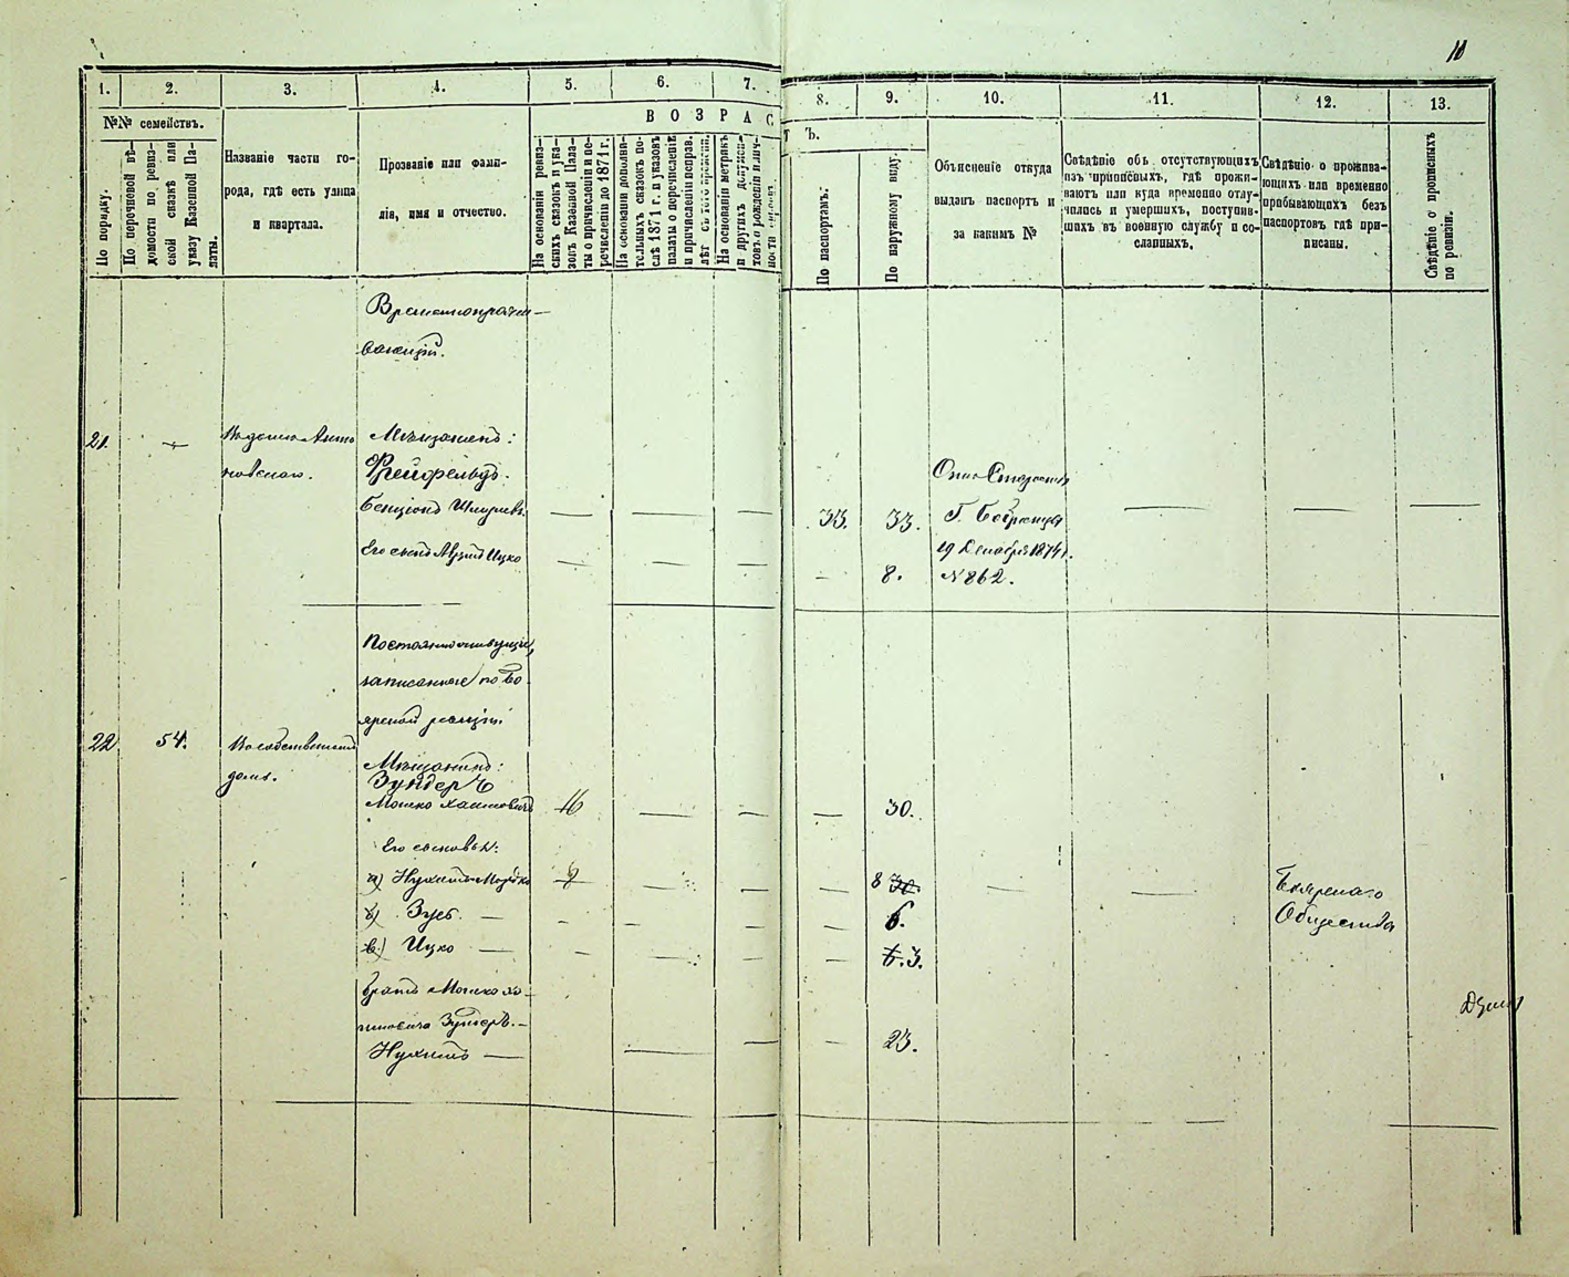 10
1.
2.
3.
4.
5.
6.
7.
8.
9.
10.
11.
12.
13.
№№ семействъ.
По порядку.
По перечновой вѣ-
домости по ревиз-
ской сказкѣ или
указу Казенной Па-
латы.
Названіе части го-
рода, гдѣ есть улица
и квартала.
Прозваніе или фами-
лія, имя и отчество.
ВОЗРАС
Т Ъ.
На основаніи ревиз-
скихъ сказокъ и ука-
зовъ Казенной Пала-
ты о причисленіи и пе-
речисленіи до 1871 г.
На основаніи дополни-
тельныхъ сказокъ по-
слѣ 1871 г. и указовъ
палаты о перечисленіе
и причисленіи исправ.
лѣт
На основаніи метрикъ
и другихъ докумен-
товъ о рожденіи и лич-
ности
По паспортамъ.
По наружному виду.
Объясненіе откуда
выданъ паспортъ и
за какимъ №
Свѣдѣніе объ отсутствующихъ
изъ приписныхъ, гдѣ прожи-
ваютъ или куда временно отлу-
чились и умершихъ, поступив-
шихъ въ военную службу и со-
сланныхъ.
Свѣдѣніе о прожива-
ющихъ или временно
прибывающихъ безъ
паспортовъ гдѣ при-
писаны.
Свѣдѣніе о прописныхъ
по ревизіи.
Временнопрожи-
вающій.
21.
Въ домѣ Анто
новскаго.
Мѣщанинъ:
Фрейфельдъ.
Бенціонъ Шмулев.
33.
33.
Г.
19 Декабря 1874 г.
Его сынъ Ицко
8.
№ 862.
Постоянноживущій,
записанные по Бо-
ярской ревизіи.
22
54.
Въ собственномъ
домѣ.
Мѣщанинъ:
Зундеръ
Мошко Хаимовичъ
16
30.
Его сыновья:
а) Нухимъ-Мордко
8 30.
Боярскаго
б) Зусъ
6.
Общества
в) Ицко
6. 3.
братъ Мошко Ха-
имовича Зундеръ.
Нухимъ
23.